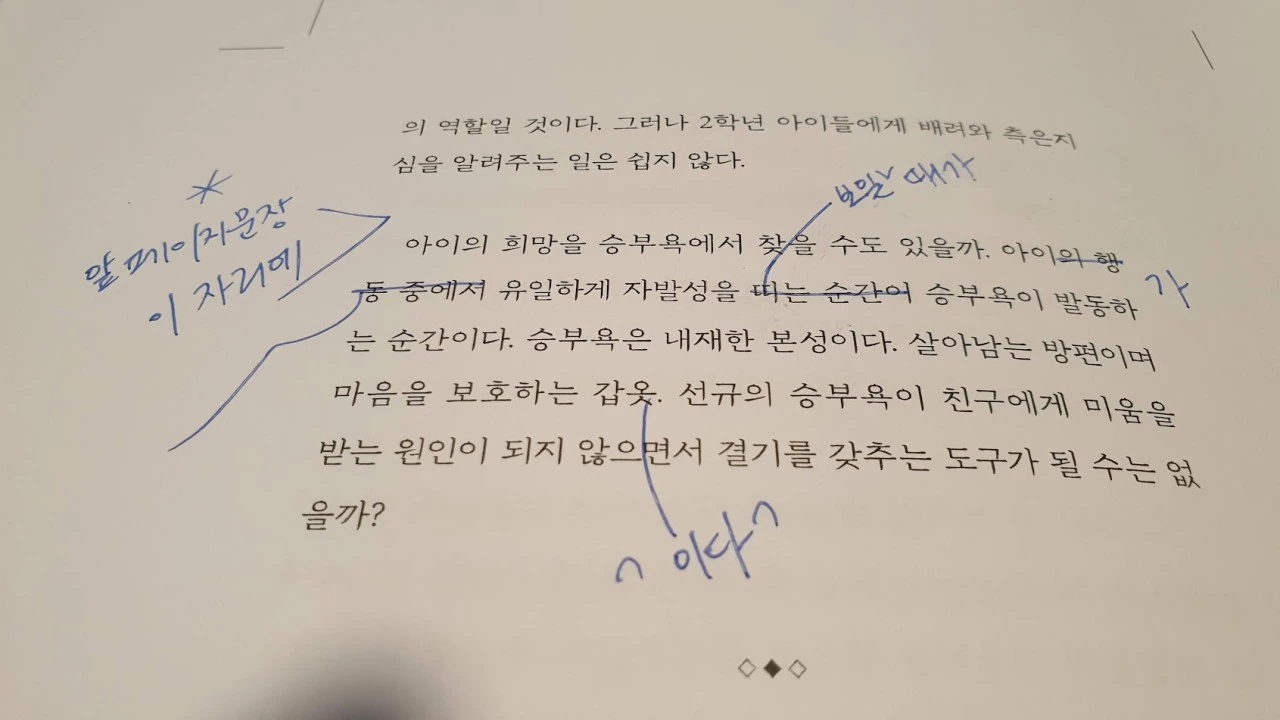 의 역할일 것이다. 그러나 2학년 아이들에게 배려와 측은지
심을 알려주는 일은 쉽지 않다.
보일 때가
앞페이지문장
이 자리에
아이의 희망을 승부욕에서 찾을 수도 있을까. 아이의 행
동 중에서 유일하게 자발성을 띠는 순간이 승부욕이 발동하
가
는 순간이다. 승부욕은 내재한 본성이다. 살아남는 방편이며
마음을 보호하는 갑옷. 선규의 승부욕이 친구에게 미움을
받는 원인이 되지 않으면서 결기를 갖추는 도구가 될 수는 없
을까?
이다